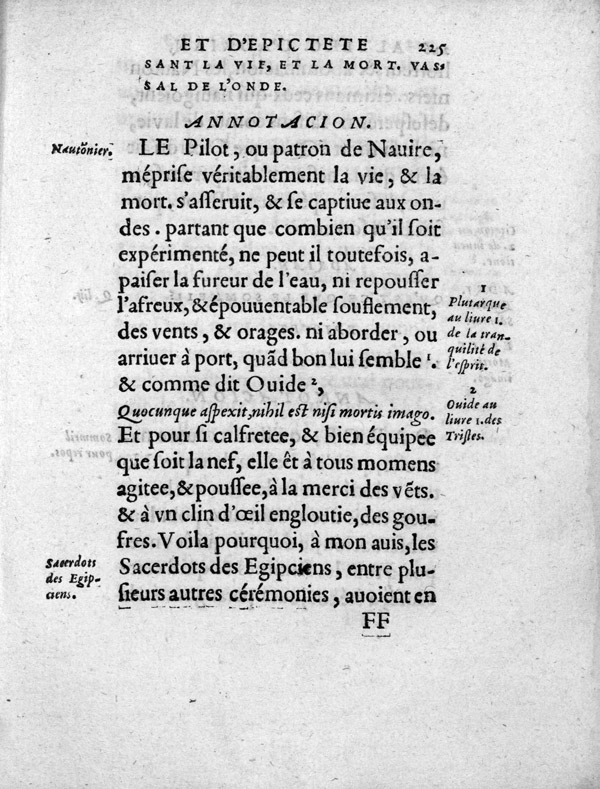 ET D'EPICTETE 225
SANT LA VIE, ET LA MORT. VAS-
SAL DE L'ONDE.
ANNOTACION.
Nautõnier.
LE Pilot, ou patron de Nauire,
méprise véritablement la vie, & la
mort. s'asseruit, & se captiue aux on-
des. partant que combien qu'il soit
expérimenté, ne peut il toutefois, a-
paiser la fureur de l'eau, ni repousser
l'afreux, & épouuentable souflement,
des vents, & orages. ni aborder, ou
arriuer à port, quãd bon lui semble ¹.
& comme dit Ouide ²,
Quocunque aspexit, nihil est nisi mortis imago.
Et pour si calfretee, & bien équipee
que soit la nef, elle êt à tous momens
agitee, & poussee, à la merci des vẽts.
& à vn clin d'œil engloutie, des gou-
fres. Voila pourquoi, à mon auis, les
Sacerdots des Egipciens, entre plu-
sieurs autres cérémonies, auoient en
FF
1
Plutarque
au liure 1.
de la tran-
quilité de
l'esprit.
2
Ouide au
liure 1. des
Tristes.
Sacerdots
des Egip-
ciens.